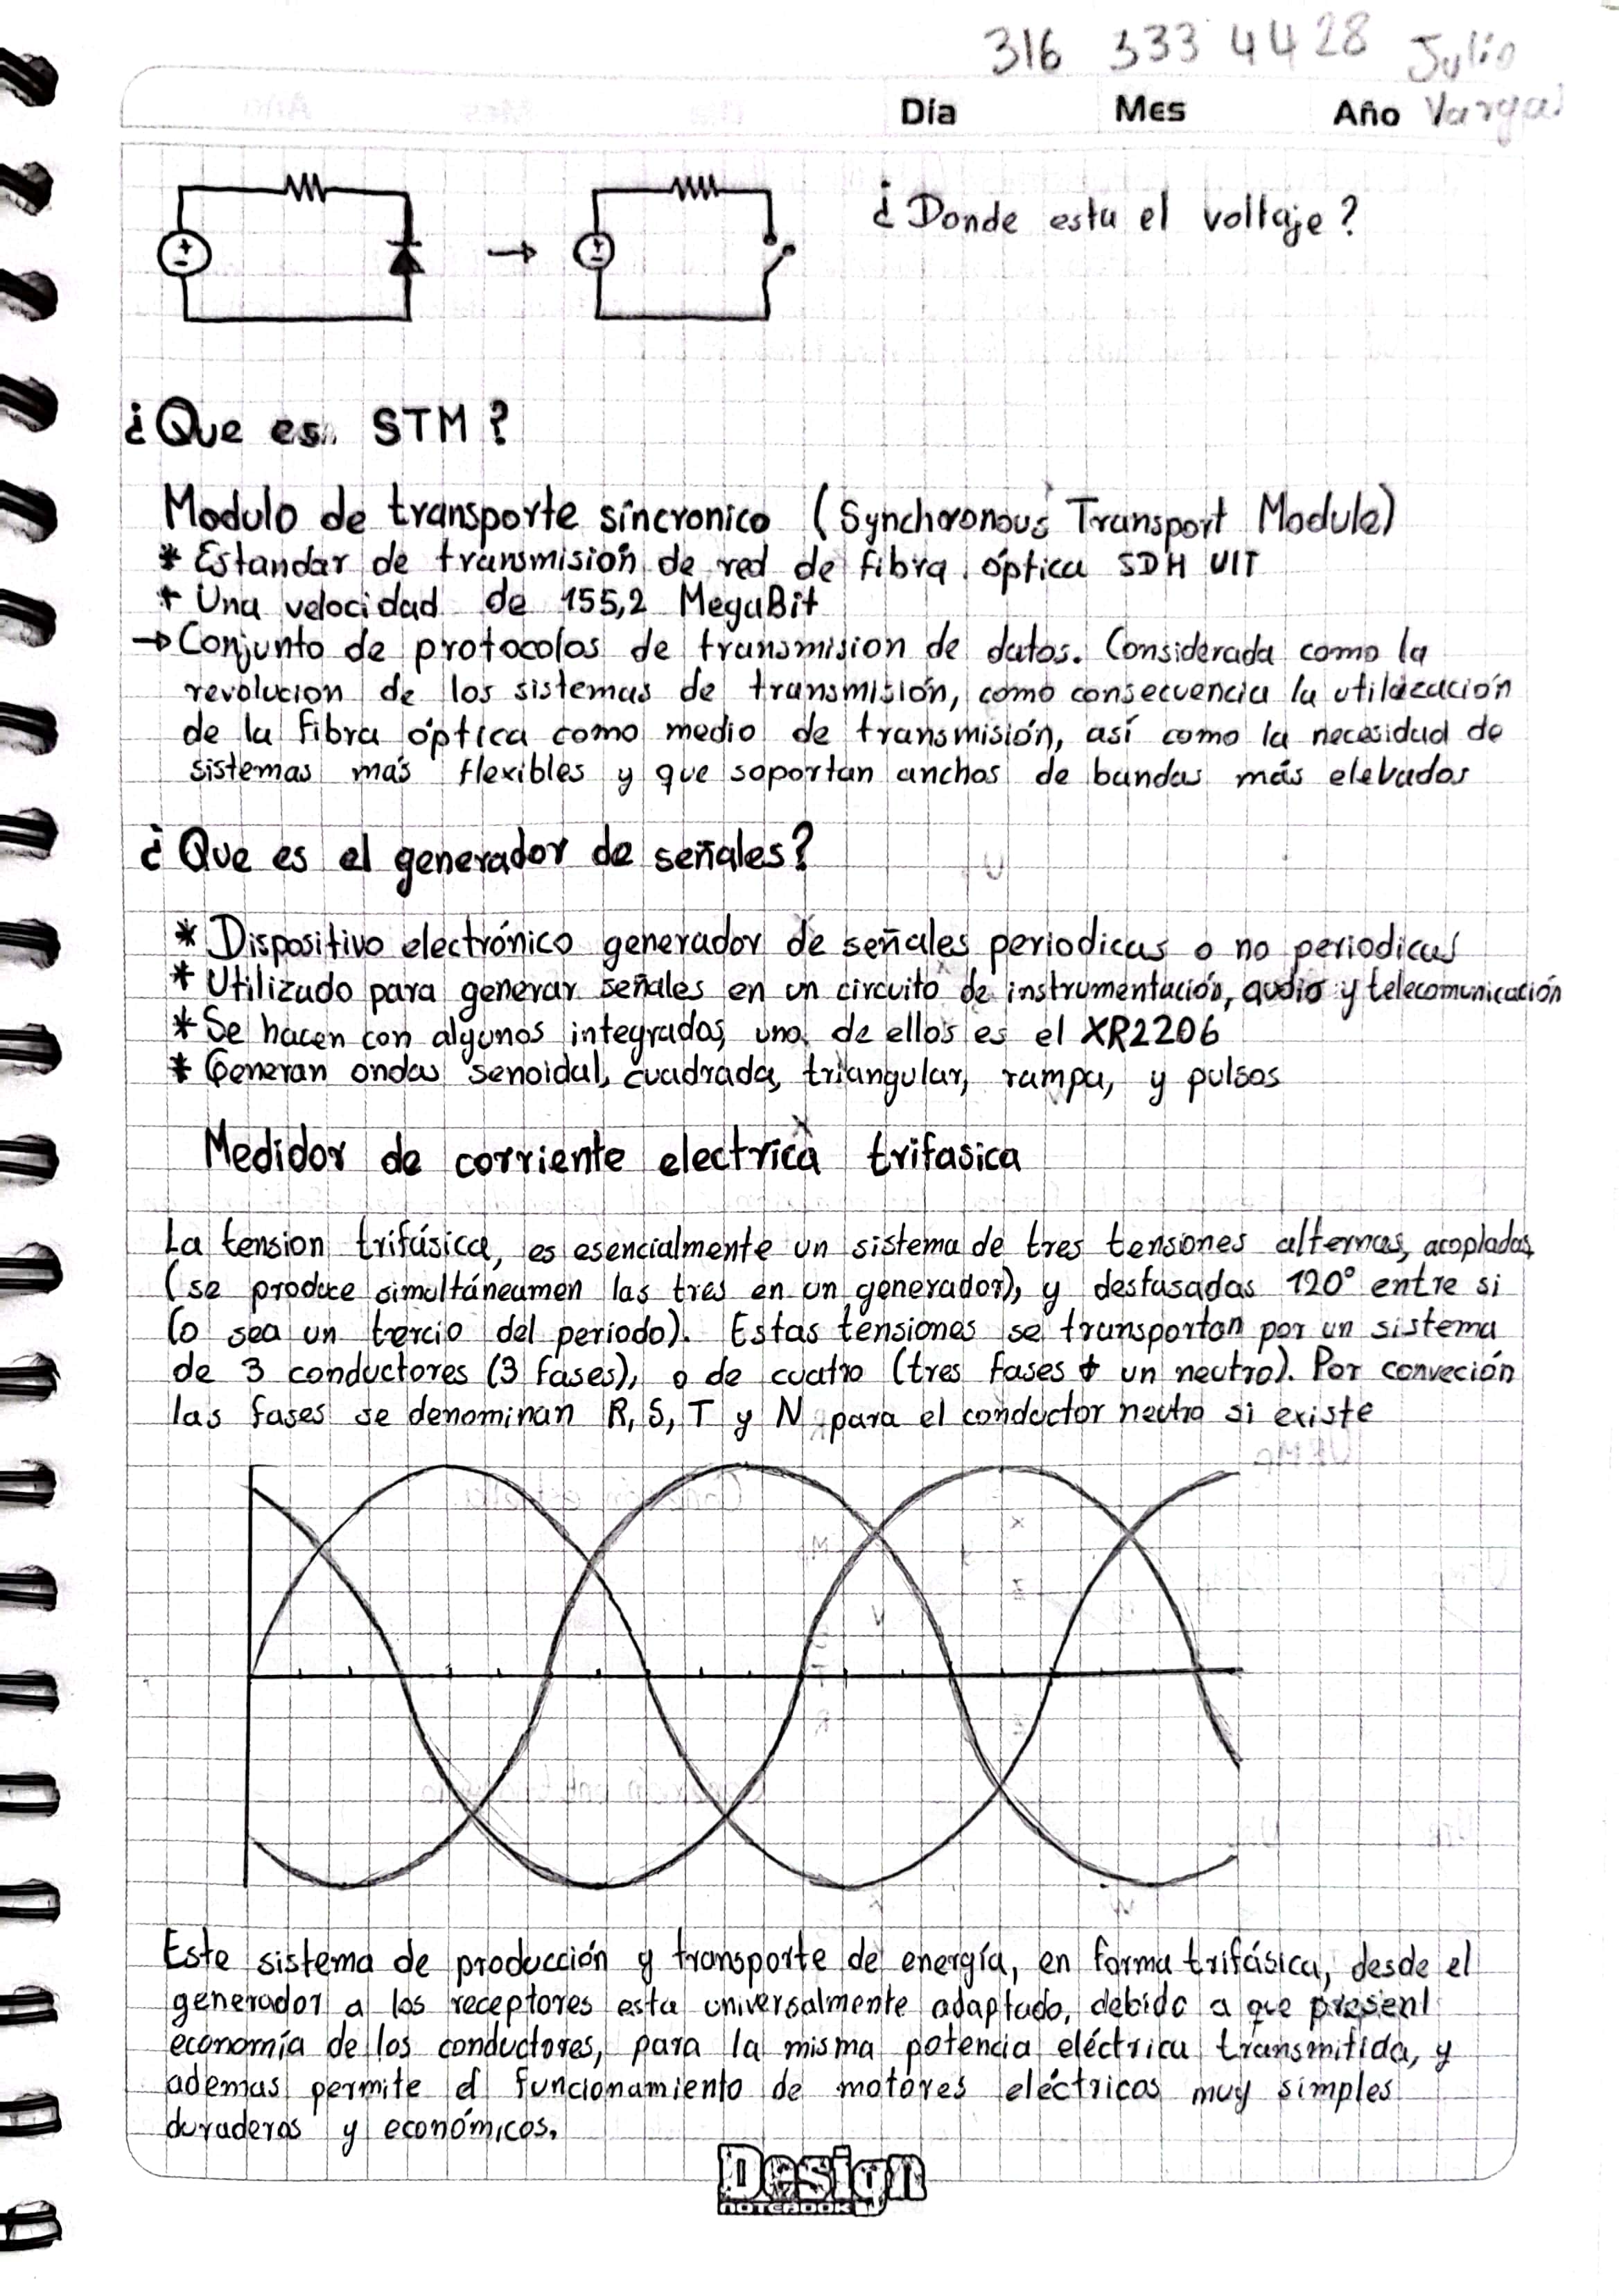 316 333 4428 Julio
Día Mes Año Vargas
¿Donde esta el voltaje?
¿Que es STM?
Modulo de transporte síncronico (Synchronous Transport Module)
* Estandar de transmisión de red de fibra óptica SDH UIT
* Una velocidad de 155,2 MegaBit
→ Conjunto de protocolos de transmision de datos. Considerada como la
revolucion de los sistemas de transmisión, como consecuencia la utilazación
de la fibra óptica como medio de transmisión, así como la necesidad de
sistemas más flexibles y que soportan anchos de bandas más elebados
¿Que es el generador de señales?
* Dispositivo electrónico generador de señales periodicas o no periodicas
* Utilizado para generar señales en un circuito de instrumentación, audio y telecomunicación
* Se hacen con algunos integrados, uno de ellos es el XR2206
* Generan ondas senoidal, cuadrada, triangular, rampa, y pulsos
Medidor de corriente electrica trifasica
La tension trifásica, es esencialmente un sistema de tres tensiones alternas, acopladas,
(se produce simultáneamen las tres en un generador), y desfasadas 120° entre si
(o sea un tercio del periodo). Estas tensiones se transportan por un sistema
de 3 conductores (3 fases), o de cuatro (tres fases + un neutro). Por conveción
las fases se denominan R, S, T y N para el conductor neutro si existe
Este sistema de producción y transporte de energía, en forma trifásica, desde el
generador a los receptores esta universalmente adaptado, debido a que present
economía de los conductores, para la misma potencia eléctrica transmitida, y
ademas permite el funcionamiento de motores eléctricos muy simples
duraderos y económicos.
Design
NOTEBOOK